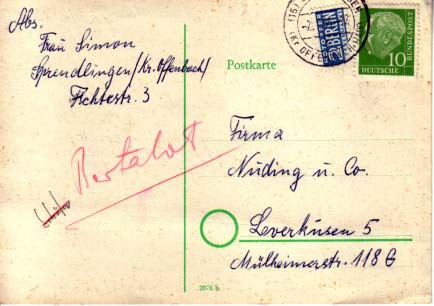 Abs.
Frau Simon
Sprendlingen/Kr. Offenbach/
Fichtestr. 3
Postkarte
NOTOPFER
2 BERLIN
STEUERMARKE
10
DEUTSCHE
BUNDESPOST
Bertalot
Firma
Nuding u. Co.
Leverkusen 5
Mülheimerstr. 118 G
2076 b